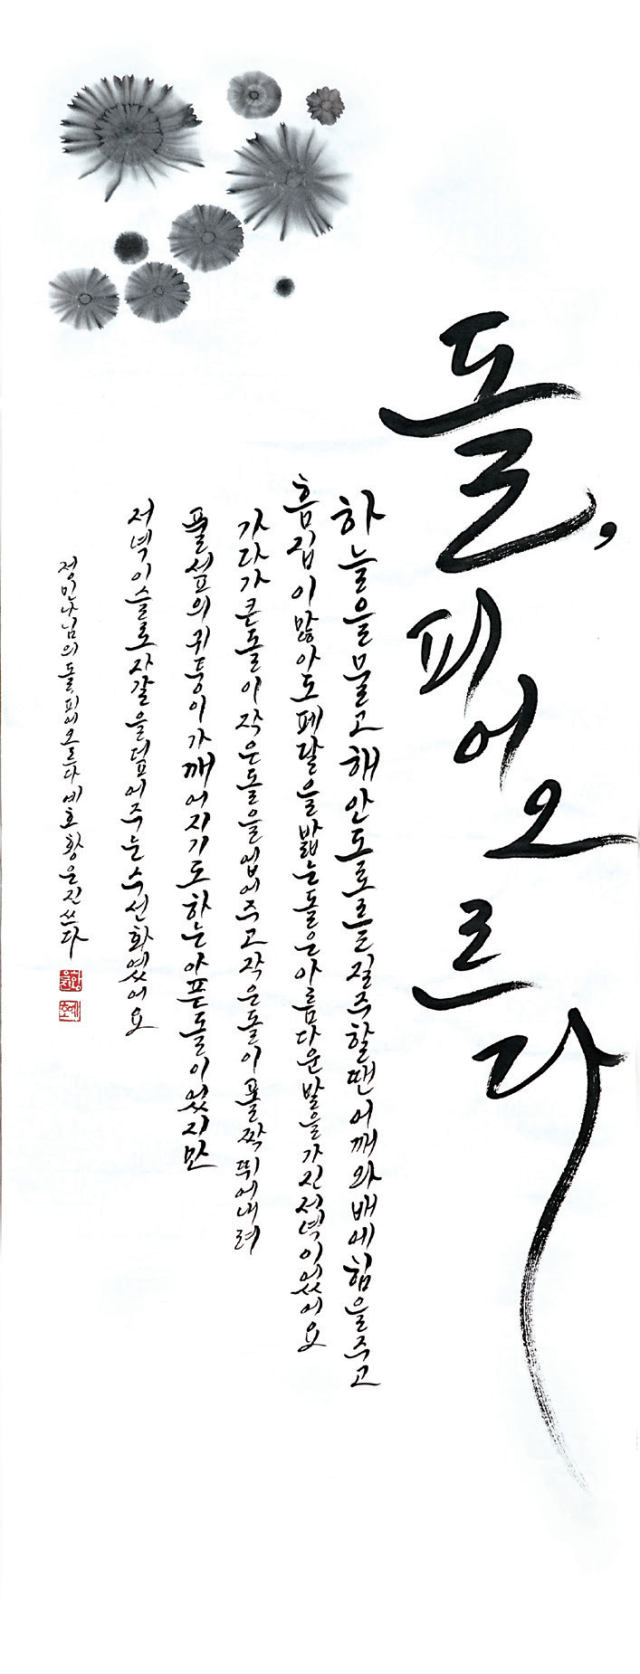 돌, 피어오르다
하늘을 물고 해안도로를 질주할땐 어깨와 배에 힘을 주고
흠집이 많아도 페달을 밟는 돌은 아름다운 발을 가진 저녁이었어요
가다가 큰돌이 작은돌을 업어주고 작은돌이 폴짝 뛰어내려
풀섶의 귀퉁이가 깨어지기도 하는 아픈돌이었지만
저녁이슬로 자갈을 덮어주는 수선화였어요
정민나님의 돌 피어오르다 예호 황윤진 쓰다